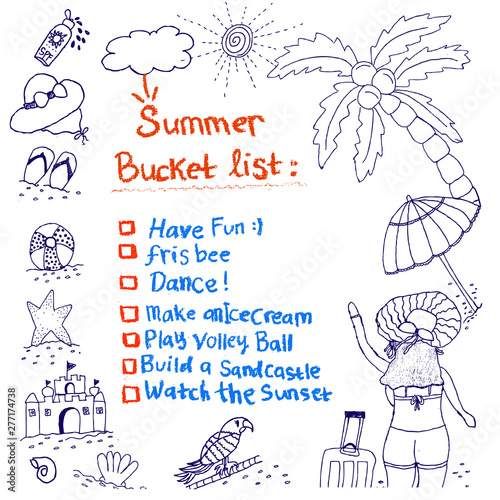 SPF
Summer
Bucket list:
Have Fun :)
frisbee
Dance!
Make an IceCream
Play Volley Ball
Build a Sandcastle
Watch the Sunset
Adobe Stock | #277174738